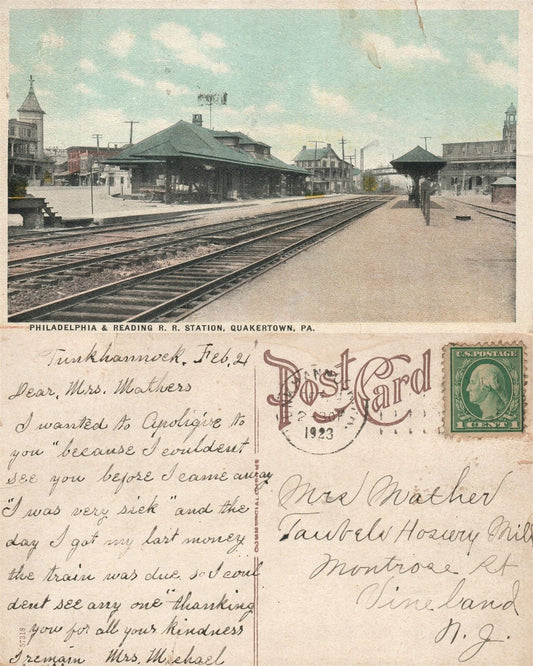 PHILADELPHIA & READING R. R. STATION, QUAKERTOWN, PA.
Tunkhannock, Feb, 21
Dear, Mrs. Mathers
I wanted to Apoligize to
you "because I couldent
see you before I came away
"I was very sick" and the
day I got my last money
the train was due, so I coul
dent see any one" thanking
you for all your kindness
I remain Mrs. Michael
57318
COMMERCIALCHROME
Post Card
2
1923
U.S. POSTAGE
1 CENT 1
Mrs Mather
Taubels Hosiery Mill
Montrose St
Vineland
N. J.